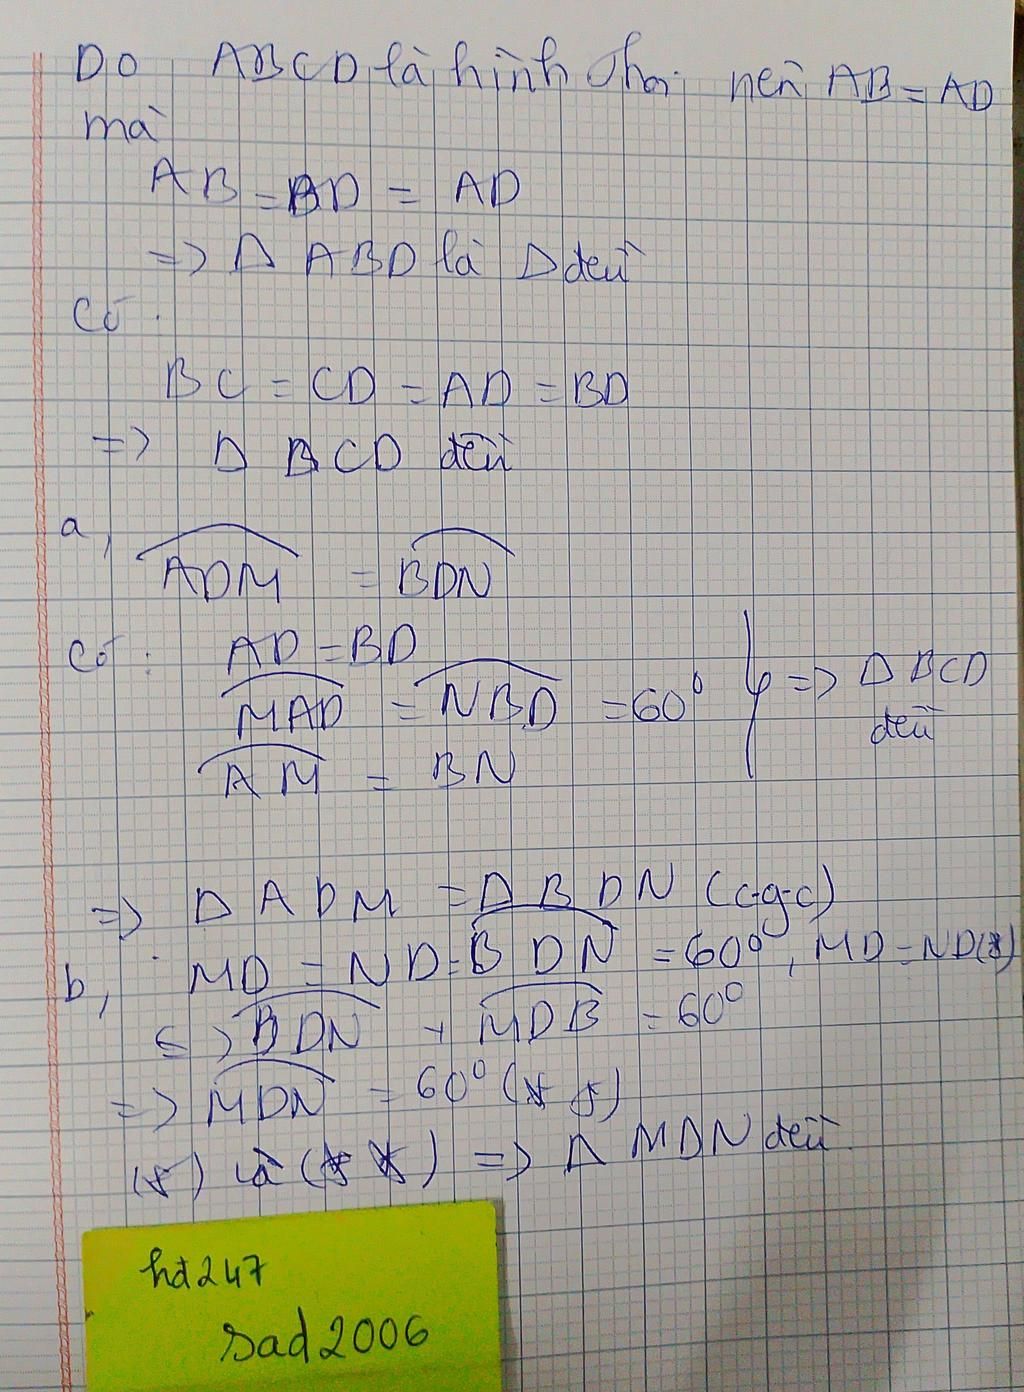 Do ABCD là hình thoi nên AB = AD
mà
AB = BD = AD
=> Δ ABD là Δ đều
Có :
BC = CD = AD = BD
=> Δ BCD đều
a,
ADM = BDN
Có : AD = BD
MAD = NBD = 60° => Δ BCD
đều
AM = BN
=> Δ ADM = Δ BDN (c-g-c)
b, MD = ND = BDN = 60°, MD = ND (*)
<=> BDN + MDB = 60°
=> MDN = 60° (* *)
(*) và (* *) => Δ MDN đều
hđ247
sad2006